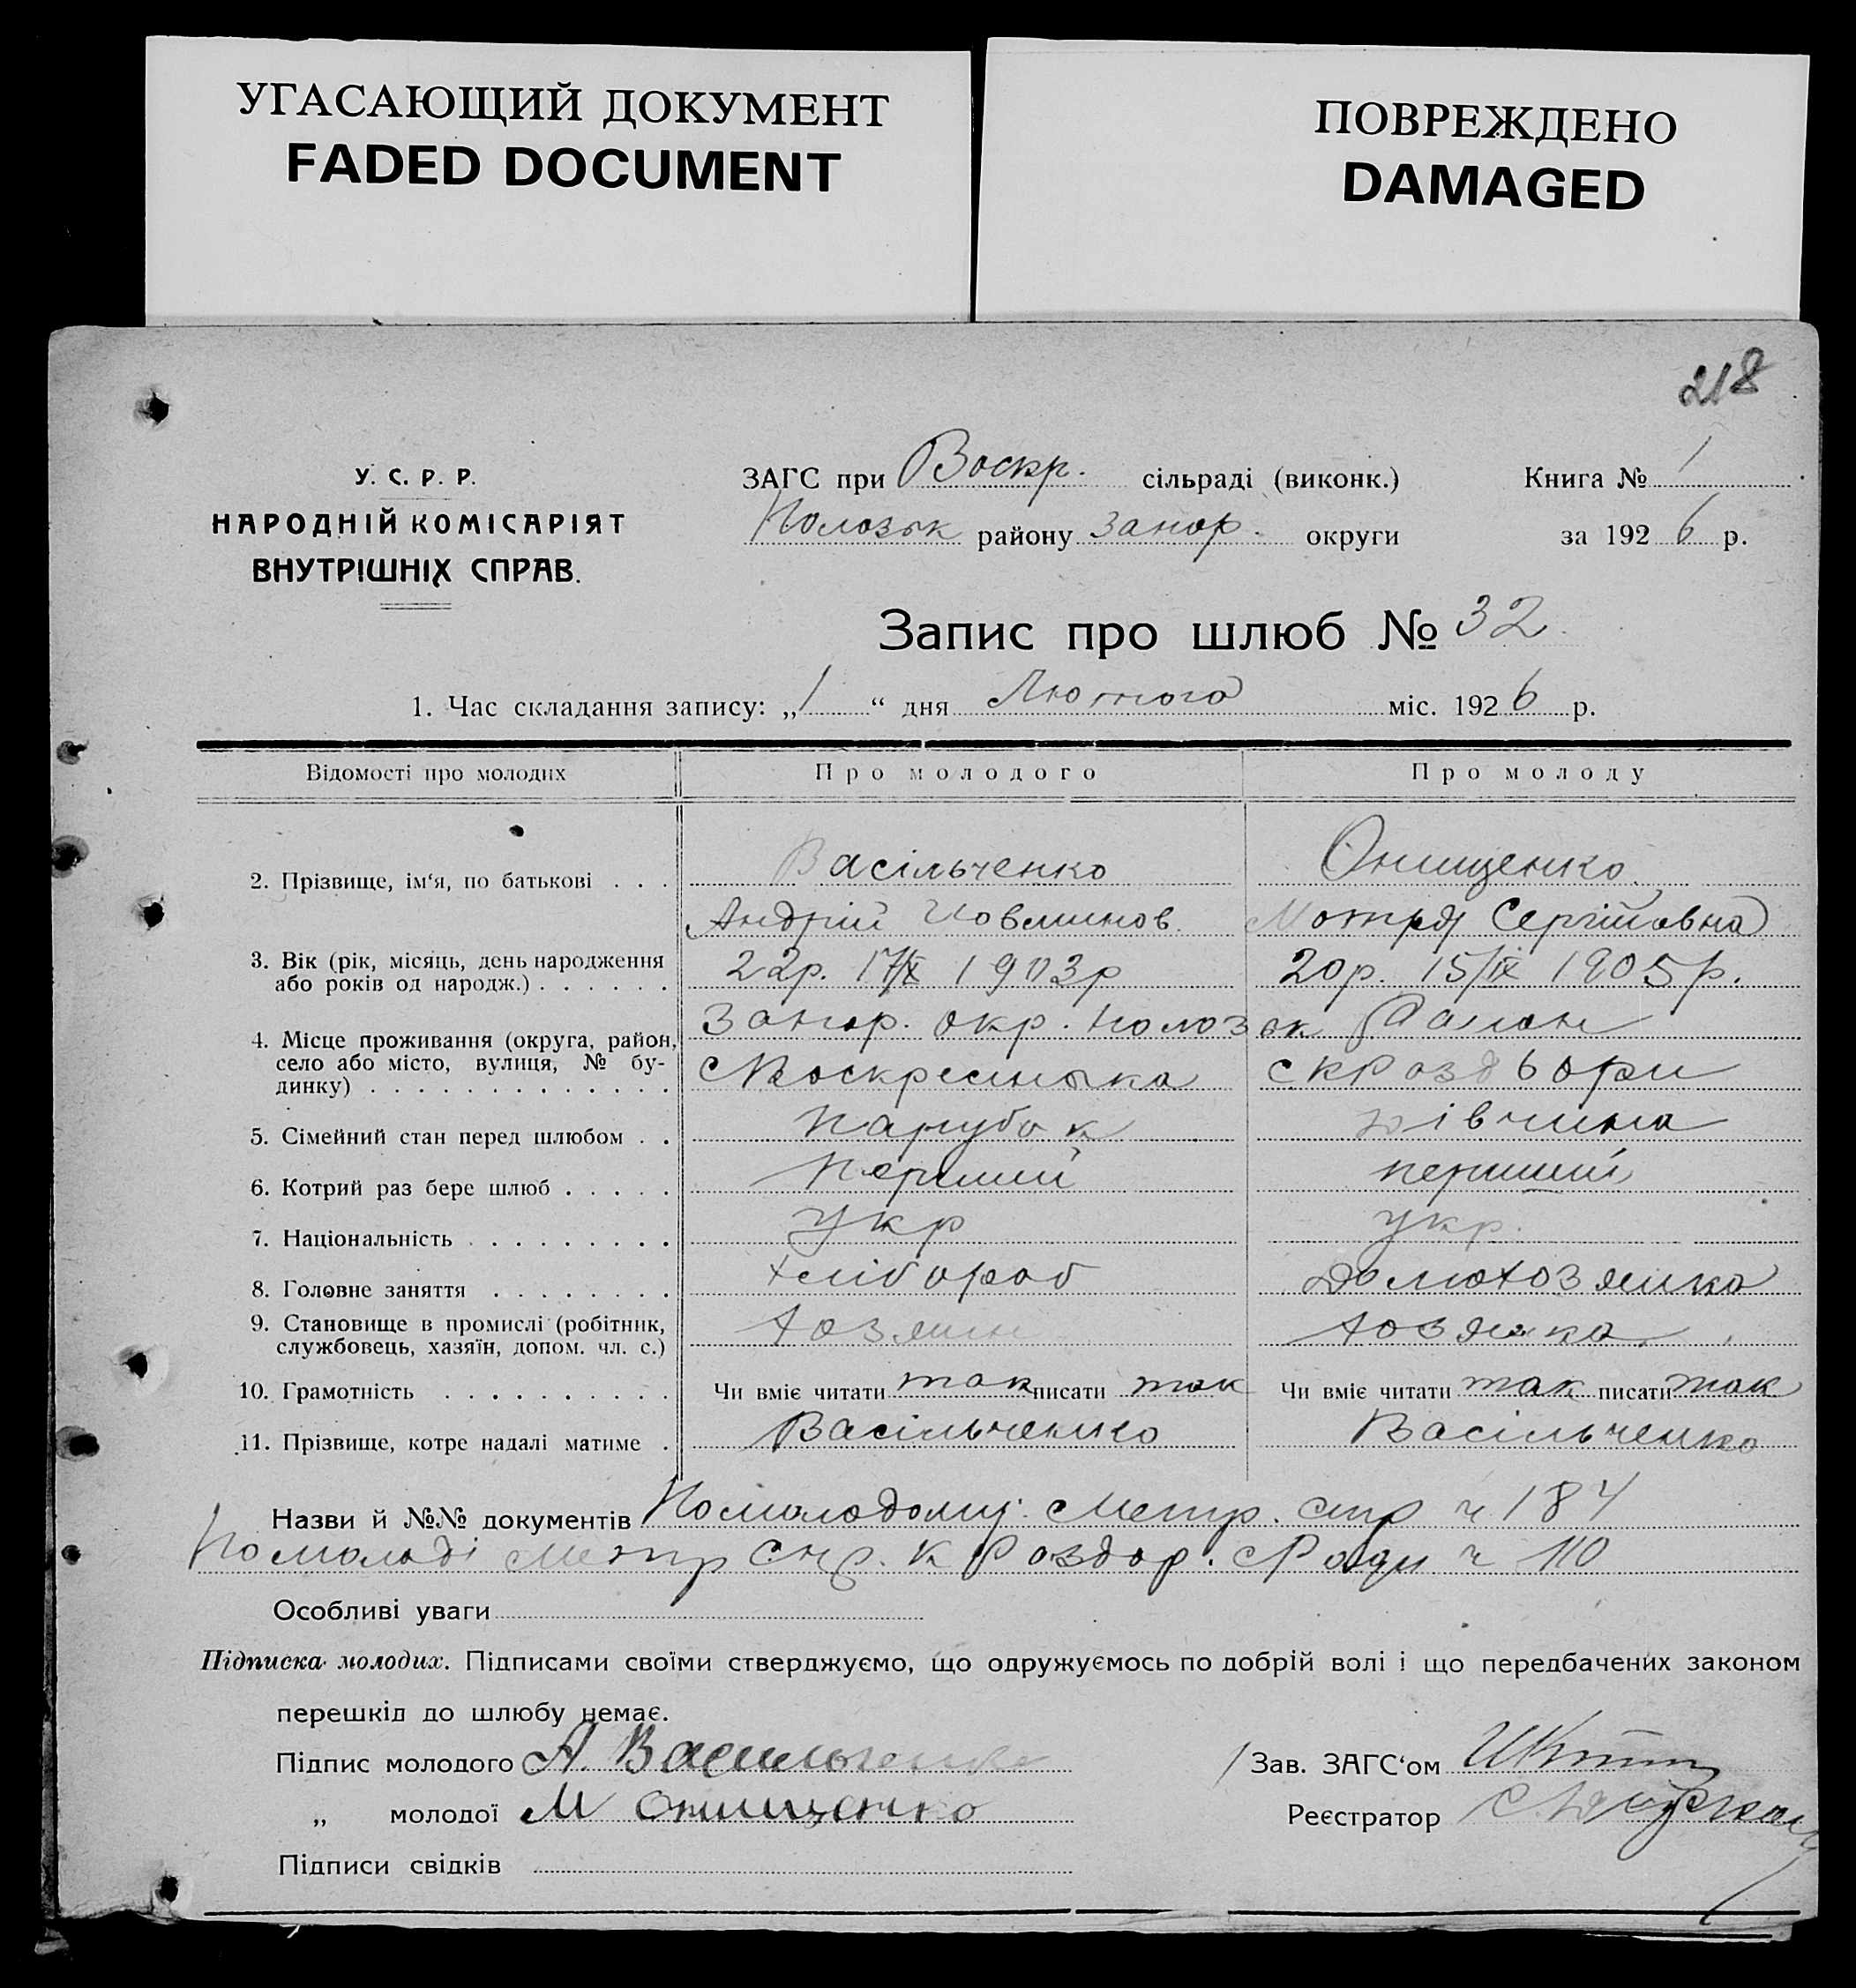 УГАСАЮЩИЙ ДОКУМЕНТ
FADED DOCUMENT
ПОВРЕЖДЕНО
DAMAGED
218
У. С. Р. Р.
НАРОДНІЙ КОМІСАРІЯТ
ВНУТРІШНІХ СПРАВ.
ЗАГС при Воскр. сільраді (виконк.) Книга № 1
Полозьк району Запор. округи за 1926 р.
Запис про шлюб № 32
1. Час складання запису: „1“ дня Лютого міс. 1926 р.
Відомості про молодих Про молодого Про молоду
2. Прізвище, ім‘я, по батькові . . . Васільченко Онищенко
Андрій Мотря Сергійовна
3. Вік (рік, місяць, день народження або років од народж.) . . . . . . 22р. 17/X 1903р 20р. 15/IX 1905р.
4. Місце проживання (округа, район, село або місто, вулиця, № будинку) . . . . . . . . . . . . . Запор. окр. Полозьк Район
с Воскресенька с КРоздвори
5. Сімейний стан перед шлюбом . . парубок дівчина
6. Котрий раз бере шлюб . . . . . перший перший
7. Національність . . . . . . . . . укр укр.
8. Головне заняття . . . . . . . . хлібороб Домохозяйка
9. Становище в промислі (робітник, службовець, хазяїн, допом. чл. с.) хозяин хозяйка
10. Грамотність . . . . . . . . . . Чи вміє читати так писати так Чи вміє читати так писати так
11. Прізвище, котре надалі матиме . Васільченко Васільченко
Назви й №№ документів По молодому: Метр. стр ч 184
По молоді Метр Спр. К Роздор. сРади ч 110
Особливі уваги
Підписка молодих. Підписами своїми стверджуємо, що одружуємось по добрій волі і що передбачених законом
перешкід до шлюбу немає.
Підпис молодого А. Васильченко Зав. ЗАГС‘ом
„ молодої М Онищенко Реєстратор
Підписи свідків